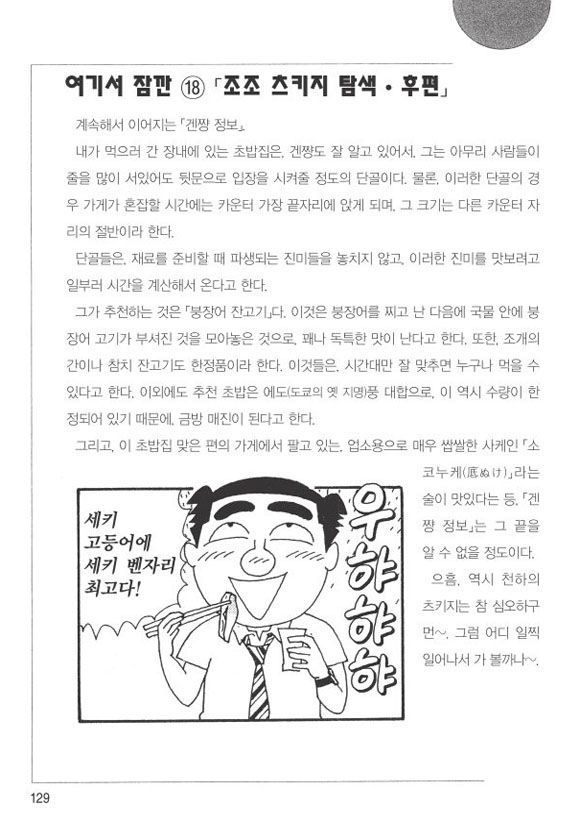 여기서 잠깐 ⑱ 「조조 츠키지 탐색 · 후편」
계속해서 이어지는 「겐쨩 정보」.
내가 먹으러 간 장내에 있는 초밥집은, 겐쨩도 잘 알고 있어서, 그는 아무리 사람들이
줄을 많이 서있어도 뒷문으로 입장을 시켜줄 정도의 단골이다. 물론, 이러한 단골의 경
우 가게가 혼잡할 시간에는 카운터 가장 끝자리에 앉게 되며, 그 크기는 다른 카운터 자
리의 절반이라 한다.
단골들은, 재료를 준비할 때 파생되는 진미들을 놓치지 않고, 이러한 진미를 맛보려고
일부러 시간을 계산해서 온다고 한다.
그가 추천하는 것은 「붕장어 잔고기」다. 이것은 붕장어를 찌고 난 다음에 국물 안에 붕
장어 고기가 부셔진 것을 모아놓은 것으로, 꽤나 독특한 맛이 난다고 한다. 또한, 조개의
간이나 참치 잔고기도 한정품이라 한다. 이것들은, 시간대만 잘 맞추면 누구나 먹을 수
있다고 한다. 이외에도 추천 초밥은 에도(도쿄의 옛 지명)풍 대합으로, 이 역시 수량이 한
정되어 있기 때문에, 금방 매진이 된다고 한다.
그리고, 이 초밥집 맞은 편의 가게에서 팔고 있는, 업소용으로 매우 쌉쌀한 사케인 「소
코누케(底ぬけ)」라는
술이 맛있다는 등, 「겐
쨩 정보」는 그 끝을
알 수 없을 정도이다.
으흠, 역시 천하의
츠키지는 참 심오하구
먼~. 그럼 어디 일찍
일어나서 가 볼까나~.
세키
고등어에
세키 벤자리
최고다!
우햐햐햐
129